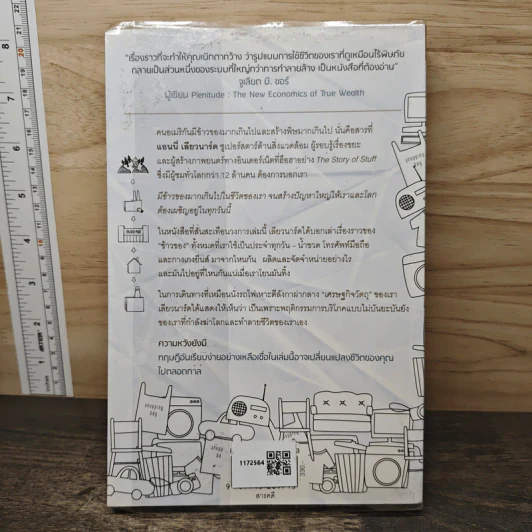 "เรื่องราวที่จะทำให้คุณเบิกตากว้าง ว่ารูปแบบการใช้ชีวิตของเราที่ดูเหมือนไร้พิษภัย
กลายเป็นส่วนหนึ่งของระบบที่ใหญ่กว่าการทำลายล้าง เป็นหนังสือที่ต้องอ่าน"
จูเลียต บี. ชอร์
ผู้เขียน Plenitude : The New Economics of True Wealth
คนอเมริกันมีข้าวของมากเกินไปและสร้างพิษมากเกินไป นั่นคือสารที่
แอนนี่ เลียวนาร์ด ซูเปอร์สตาร์ด้านสิ่งแวดล้อม ผู้รอบรู้เรื่องขยะ
และผู้สร้างภาพยนตร์ทางอินเตอร์เน็ตที่ลือลือย่าง The Story of Stuff
ซึ่งมีผู้ชมทั่วโลกกว่า 12 ล้านคน ต้องการบอกเรา
มีข้าวของมากเกินไปในชีวิตของเรา จนสร้างปัญหาใหญ่ให้เราและโลก
ต้องเผชิญอยู่ในทุกวันนี้
ในหนังสือที่สั่นสะเทือนวงการเล่มนี้ เลียวนาร์ดได้บอกเล่าเรื่องราวของ
"ข้าวของ" ทั้งหมดที่เราใช้เป็นประจำทุกวัน - น้ำขวด โทรศัพท์มือถือ
และกางเกงยีนส์ มาจากไหนกัน ผลิตและจัดจำหน่ายอย่างไร
และมันไปอยู่ที่ไหนกันแน่เมื่อเราโยนมันทิ้ง
ในการเดินทางที่เหมือนนั่งรถไฟเหาะตีลังกาผ่ากลาง "เศรษฐกิจวัตถุ" ของเรา
เลียวนาร์ดได้แสดงให้เห็นว่า เป็นเพราะพฤติกรรมการบริโภคแบบไม่บันยะบันยัง
ของเราที่กำลังฆ่าโลกและทำลายชีวิตของเราเอง
ความหวังยังมี
ทฤษฎีอันเรียบง่ายอย่างเหลือเชื่อในเล่มนี้อาจเปลี่ยนแปลงชีวิตของคุณ
ไปตลอดกาล
shopping bag
shopping bag
1172564
330.-
สารคดี